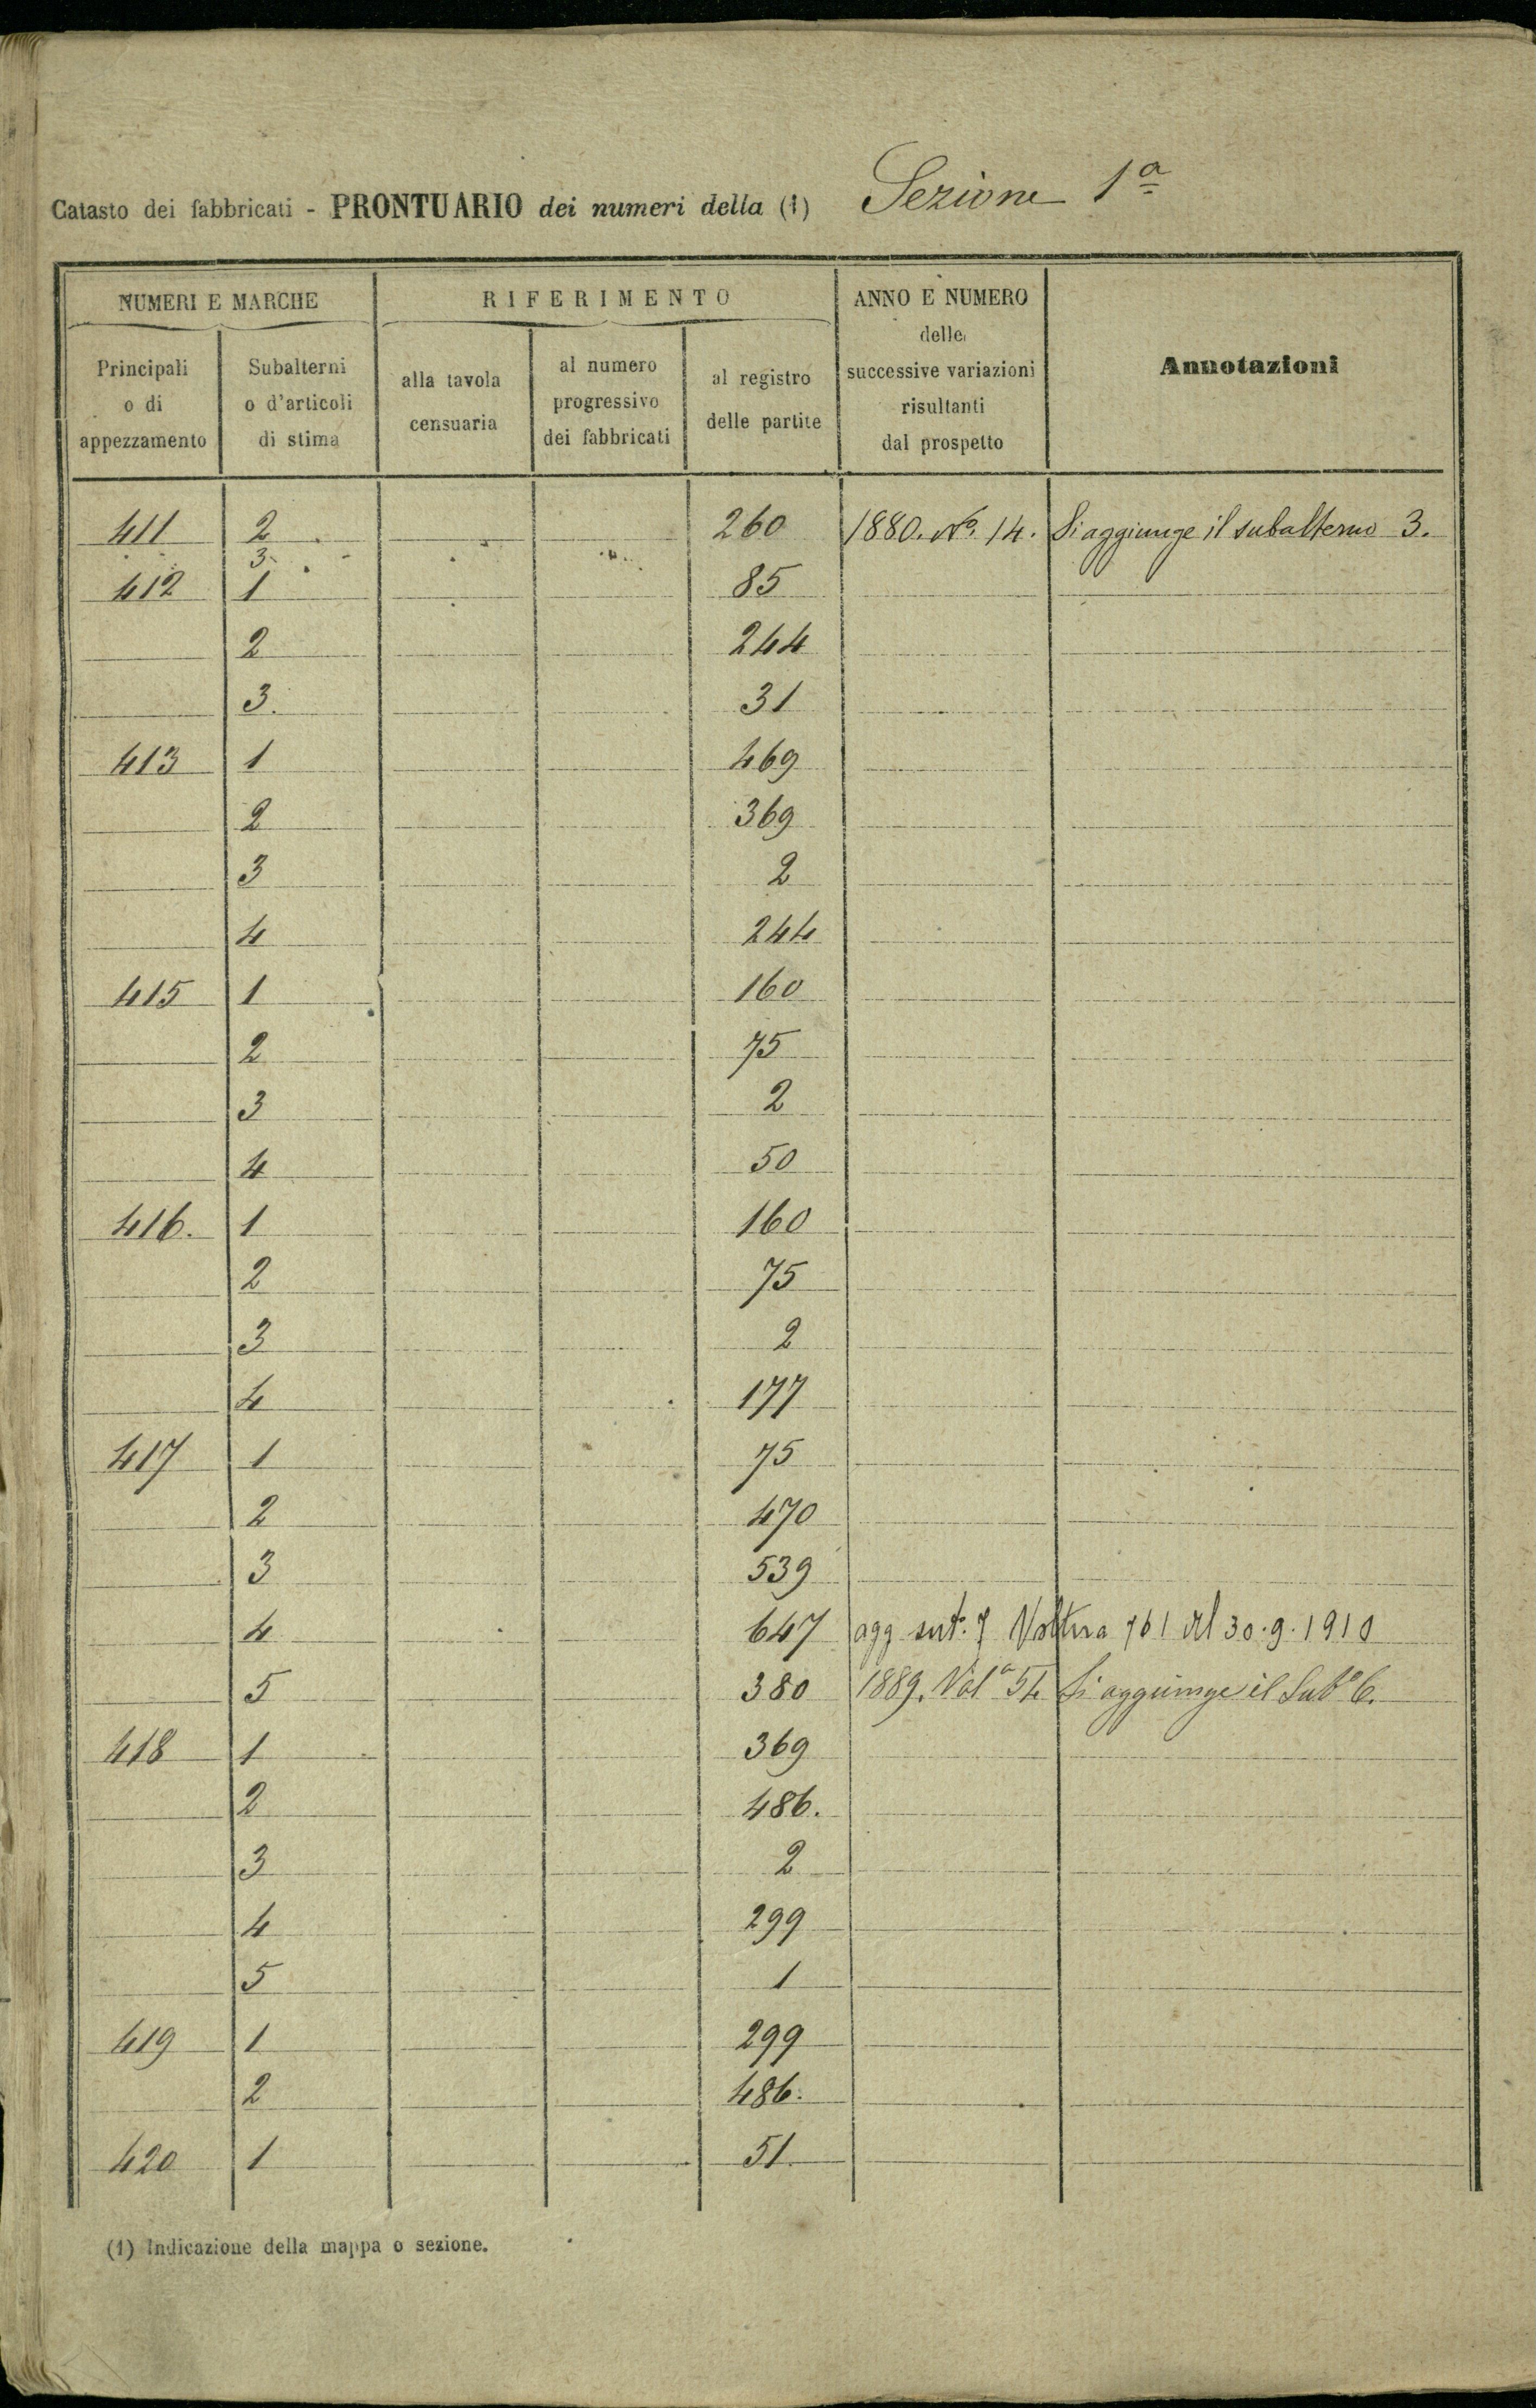 Catasto dei fabbricati - PRONTUARIO dei numeri della (1) Sezione 1ª
NUMERI E MARCHE
RIFERIMENTO
ANNO E NUMERO
delle
successive variazioni
risultanti
dal prospetto
Annotazioni
Principali
o di
appezzamento
Subalterni
o d'articoli
di stima
alla tavola
censuaria
al numero
progressivo
dei fabbricati
al registro
delle partite
411 2 260 1880. Nº. 14. Si aggiunge il subalterno 3.
3
412 1 85
2 244
3. 31
413 1 469
2 369
3 2
4 244
415 1 160
2 75
3 2
4 50
416. 1 160
2 75
3 2
4 177
417 1 75
2 470
3 539
4 647 agg sub: 7 Voltura 761 del 30.9.1910
5 380 1889. Volª 54 Si aggiunge il Subº 6.
418 1 369
2 486.
3 2
4 299
5 1
419 1 299
2 486.
420 1 51
(1) Indicazione della mappa o sezione.